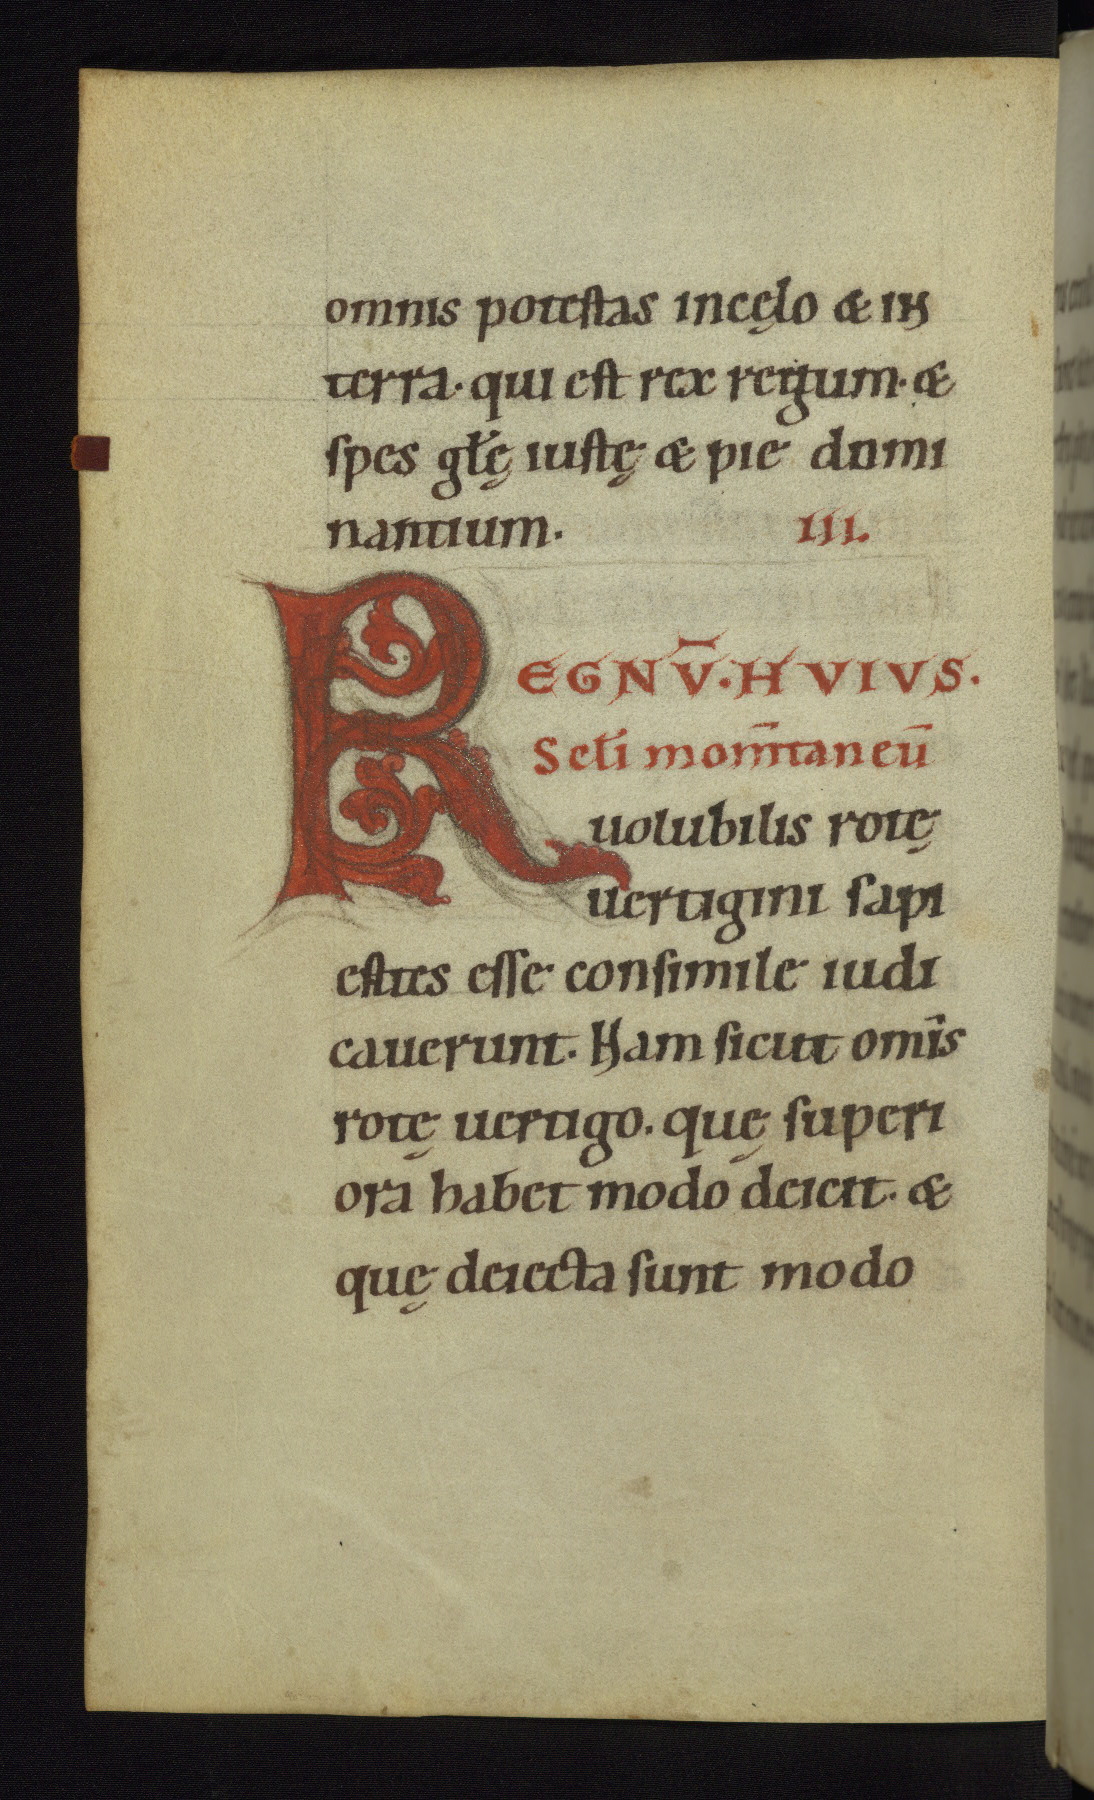 omnis potestas incęlo & in
terra· qui est rex regum· &
spes gl̄ę iustę & pie domi
nantium. III.
REGNV̄·HVIVS.
Scl̄i mom̄taneū
uolubilis rotę
uertigini sapi
entes esse consimile iudi
cauerunt. Nam sicut om̄is
rotę uertigo. quę superi
ora habet modo deicit· &
quę deiecta sunt modo